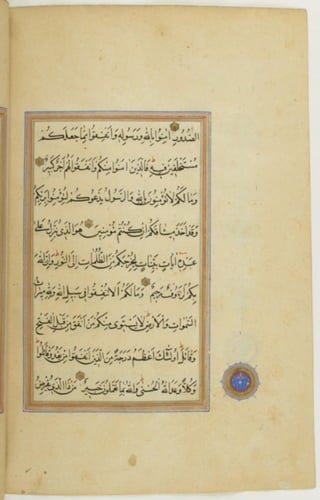 الصُّدُورِ آمِنُوا بِاللَّهِ وَرَسُولِهِ وَأَنفِقُوا مِمَّا جَعَلَكُم
مُسْتَخْلَفِينَ فِيهِ فَالَّذِينَ آمَنُوا مِنكُمْ وَأَنفَقُوا لَهُمْ أَجْرٌ كَبِيرٌ
وَمَا لَكُمْ لَا تُؤْمِنُونَ بِاللَّهِ وَالرَّسُولُ يَدْعُوكُمْ لِتُؤْمِنُوا بِرَبِّكُمْ
وَقَدْ أَخَذَ مِيثَاقَكُمْ إِن كُنتُم مُّؤْمِنِينَ هُوَ الَّذِي يُنَزِّلُ عَلَى
عَبْدِهِ آيَاتٍ بَيِّنَاتٍ لِيُخْرِجَكُم مِّنَ الظُّلُمَاتِ إِلَى النُّورِ وَإِنَّ اللَّهَ
بِكُمْ لَرَءُوفٌ رَّحِيمٌ وَمَا لَكُمْ أَلَّا تُنفِقُوا فِي سَبِيلِ اللَّهِ وَلِلَّهِ مِيرَاثُ
السَّمَوَاتِ وَالْأَرْضِ لَا يَسْتَوِي مِنكُم مَّنْ أَنفَقَ مِن قَبْلِ الْفَتْحِ
وَقَاتَلَ أُولَئِكَ أَعْظَمُ دَرَجَةً مِّنَ الَّذِينَ أَنفَقُوا مِن بَعْدُ وَقَاتَلُوا
وَكُلًّا وَعَدَ اللَّهُ الْحُسْنَى وَاللَّهُ بِمَا تَعْمَلُونَ خَبِيرٌ مَّن ذَا الَّذِي يُقْرِضُ